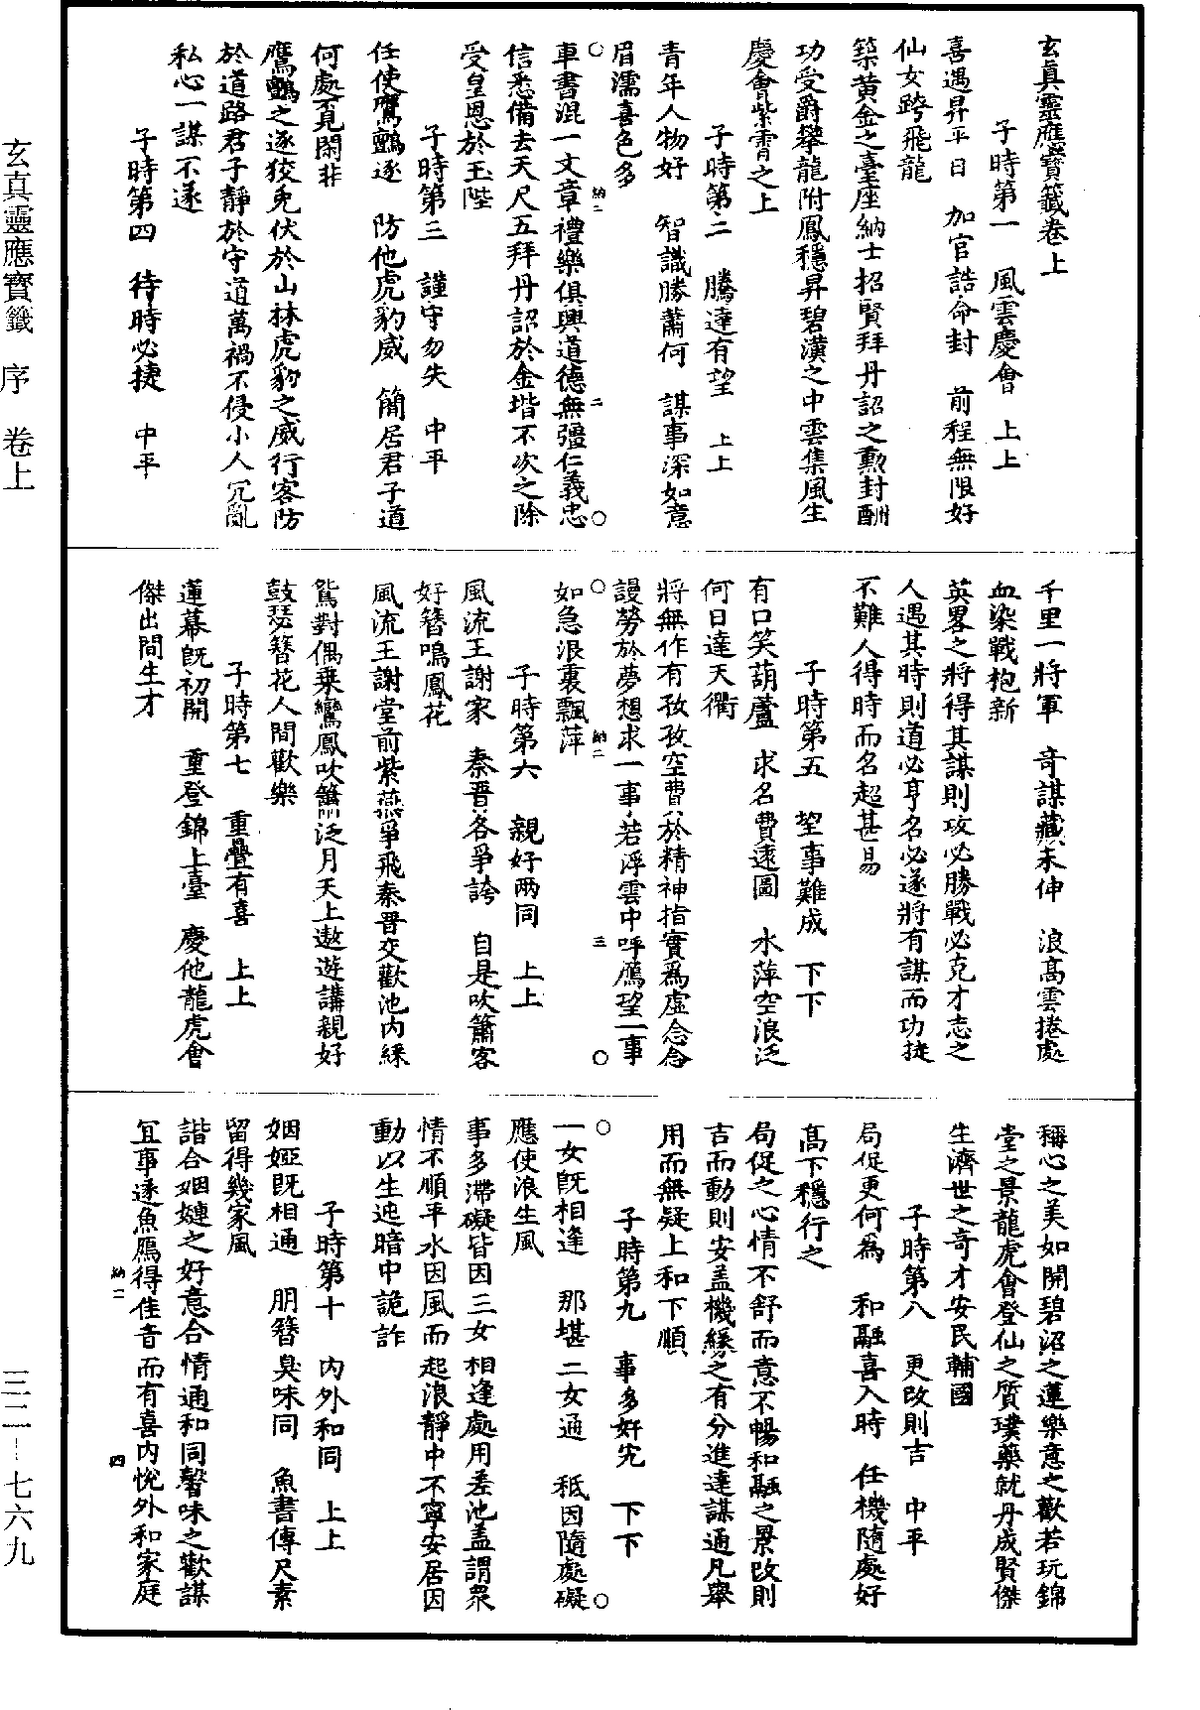 玄真靈應寶籤卷上
子時第一 風雲慶會 上上
喜遇昇平日 加官誥命封 前程無限好
仙女跨飛龍
築黃金之臺座納士招賢拜丹詔之勳封酬
功受爵攀龍附鳳穩昇碧漢之中雲集風生
慶會紫霄之上
子時第二 騰達有望 上上
青年人物好 智識勝蕭何 謀事深如意
眉濡喜色多
○ 納二 二 ○
車書混一文章禮樂俱興道德無彊仁義忠
信悉備去天尺五拜丹詔於金堦不次之除
受皇恩於玉陛
子時第三 謹守勿失 中平
任使鷹鸇逐 防他虎豹威 簡居君子道
何處覓閑非
鷹鸇之逐狡兔伏於山林虎豹之威行客防
於道路君子靜於守道萬禍不侵小人冗亂
私心一謀不遂
子時第四 待時必捷 中平
千里一將軍 奇謀藏未伸 浪高雲捲處
血染戰袍新
英畧之將得其謀則攻必勝戰必克才志之
人遇其時則道必亨名必遂將有謀而功捷
不難人得時而名超甚易
子時第五 望事難成 下下
有口笑葫蘆 求名費遠圖 水萍空浪泛
何日達天衢
將無作有孜孜空費於精神指實為虛念念
謾勞於夢想求一事若浮雲中呼鴈望一事
○ 納二 三 ○
如急浪裏飄萍
子時第六 親好兩同 上上
風流王謝家 秦晉各爭誇 自是吹簫客
好簪鳴鳳花
風流王謝堂前紫燕爭飛秦晉交歡池內綵
鴛對偶乗鸞鳳吹簫泛月天上遨遊講親好
鼓瑟簪花人間歡樂
子時第七 重疊有喜 上上
蓮幕旣初開 重登錦上臺 慶他龍虎會
傑出間生才
稱心之美如開碧沼之蓮樂意之歡若玩錦
堂之景龍虎會登仙之質璞藥就丹成賢傑
生濟世之奇才安民輔國
子時第八 更改則吉 中平
局促更何為 和融喜入時 任機隨處好
高下穩行之
局促之心情不舒而意不暢和融之景改則
吉而動則安盖機緣之有分進達謀通凡舉
用而無疑上和下順
子時第九 事多奸宄 下下
○ ○
一女旣相逢 那堪二女通 秪因隨處礙
應使浪生風
事多滯礙皆因三女相逢處用差池盖謂衆
情不順平水因風而起浪靜中不寧安居因
動以生迍暗中詭詐
子時第十 內外和同 上上
姻婭旣相通 朋簪臭味同 魚書傳尺素
留得幾家風
諧合姻嬿之好意合情通和同馨味之歡謀
冝事遂魚鴈得佳音而有喜內悅外和家庭
納二 四
玄真靈應寶籤 序 卷上
三二—七六九